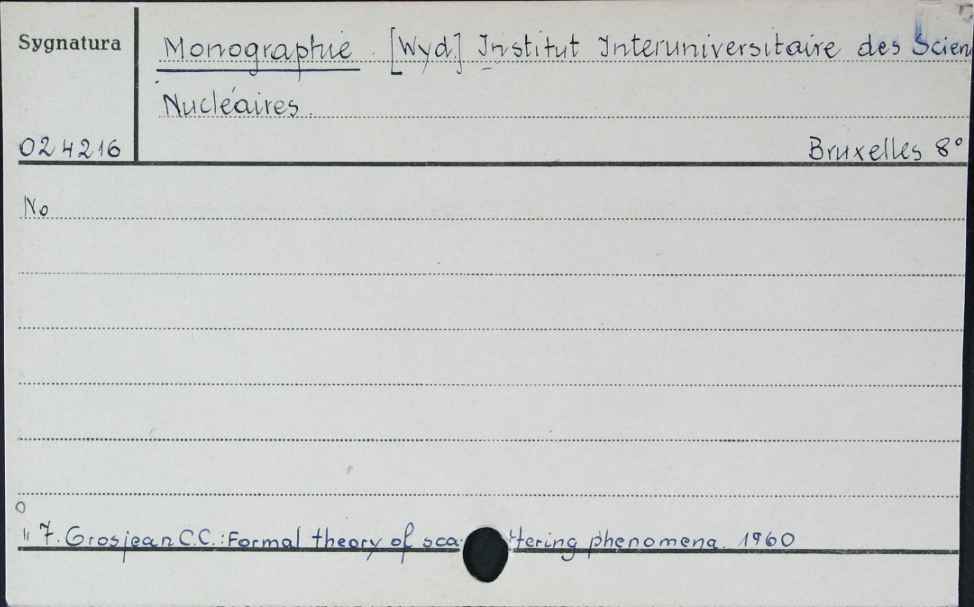 Sygnatura
Monographie. [Wyd.] Institut Interuniversitaire des Scien
Nucléaires.
024216
Bruxelles 8°
No
7. Grosjean C.C.: Formal theory of sca ttering phenomena. 1960